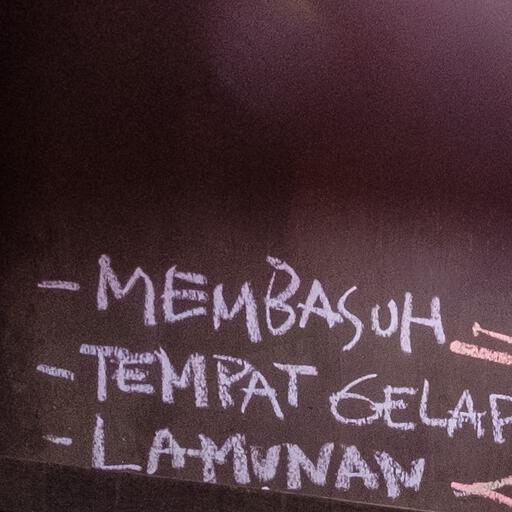 - MEMBASUH
- TEMPAT GELAP
- LAMUNAN